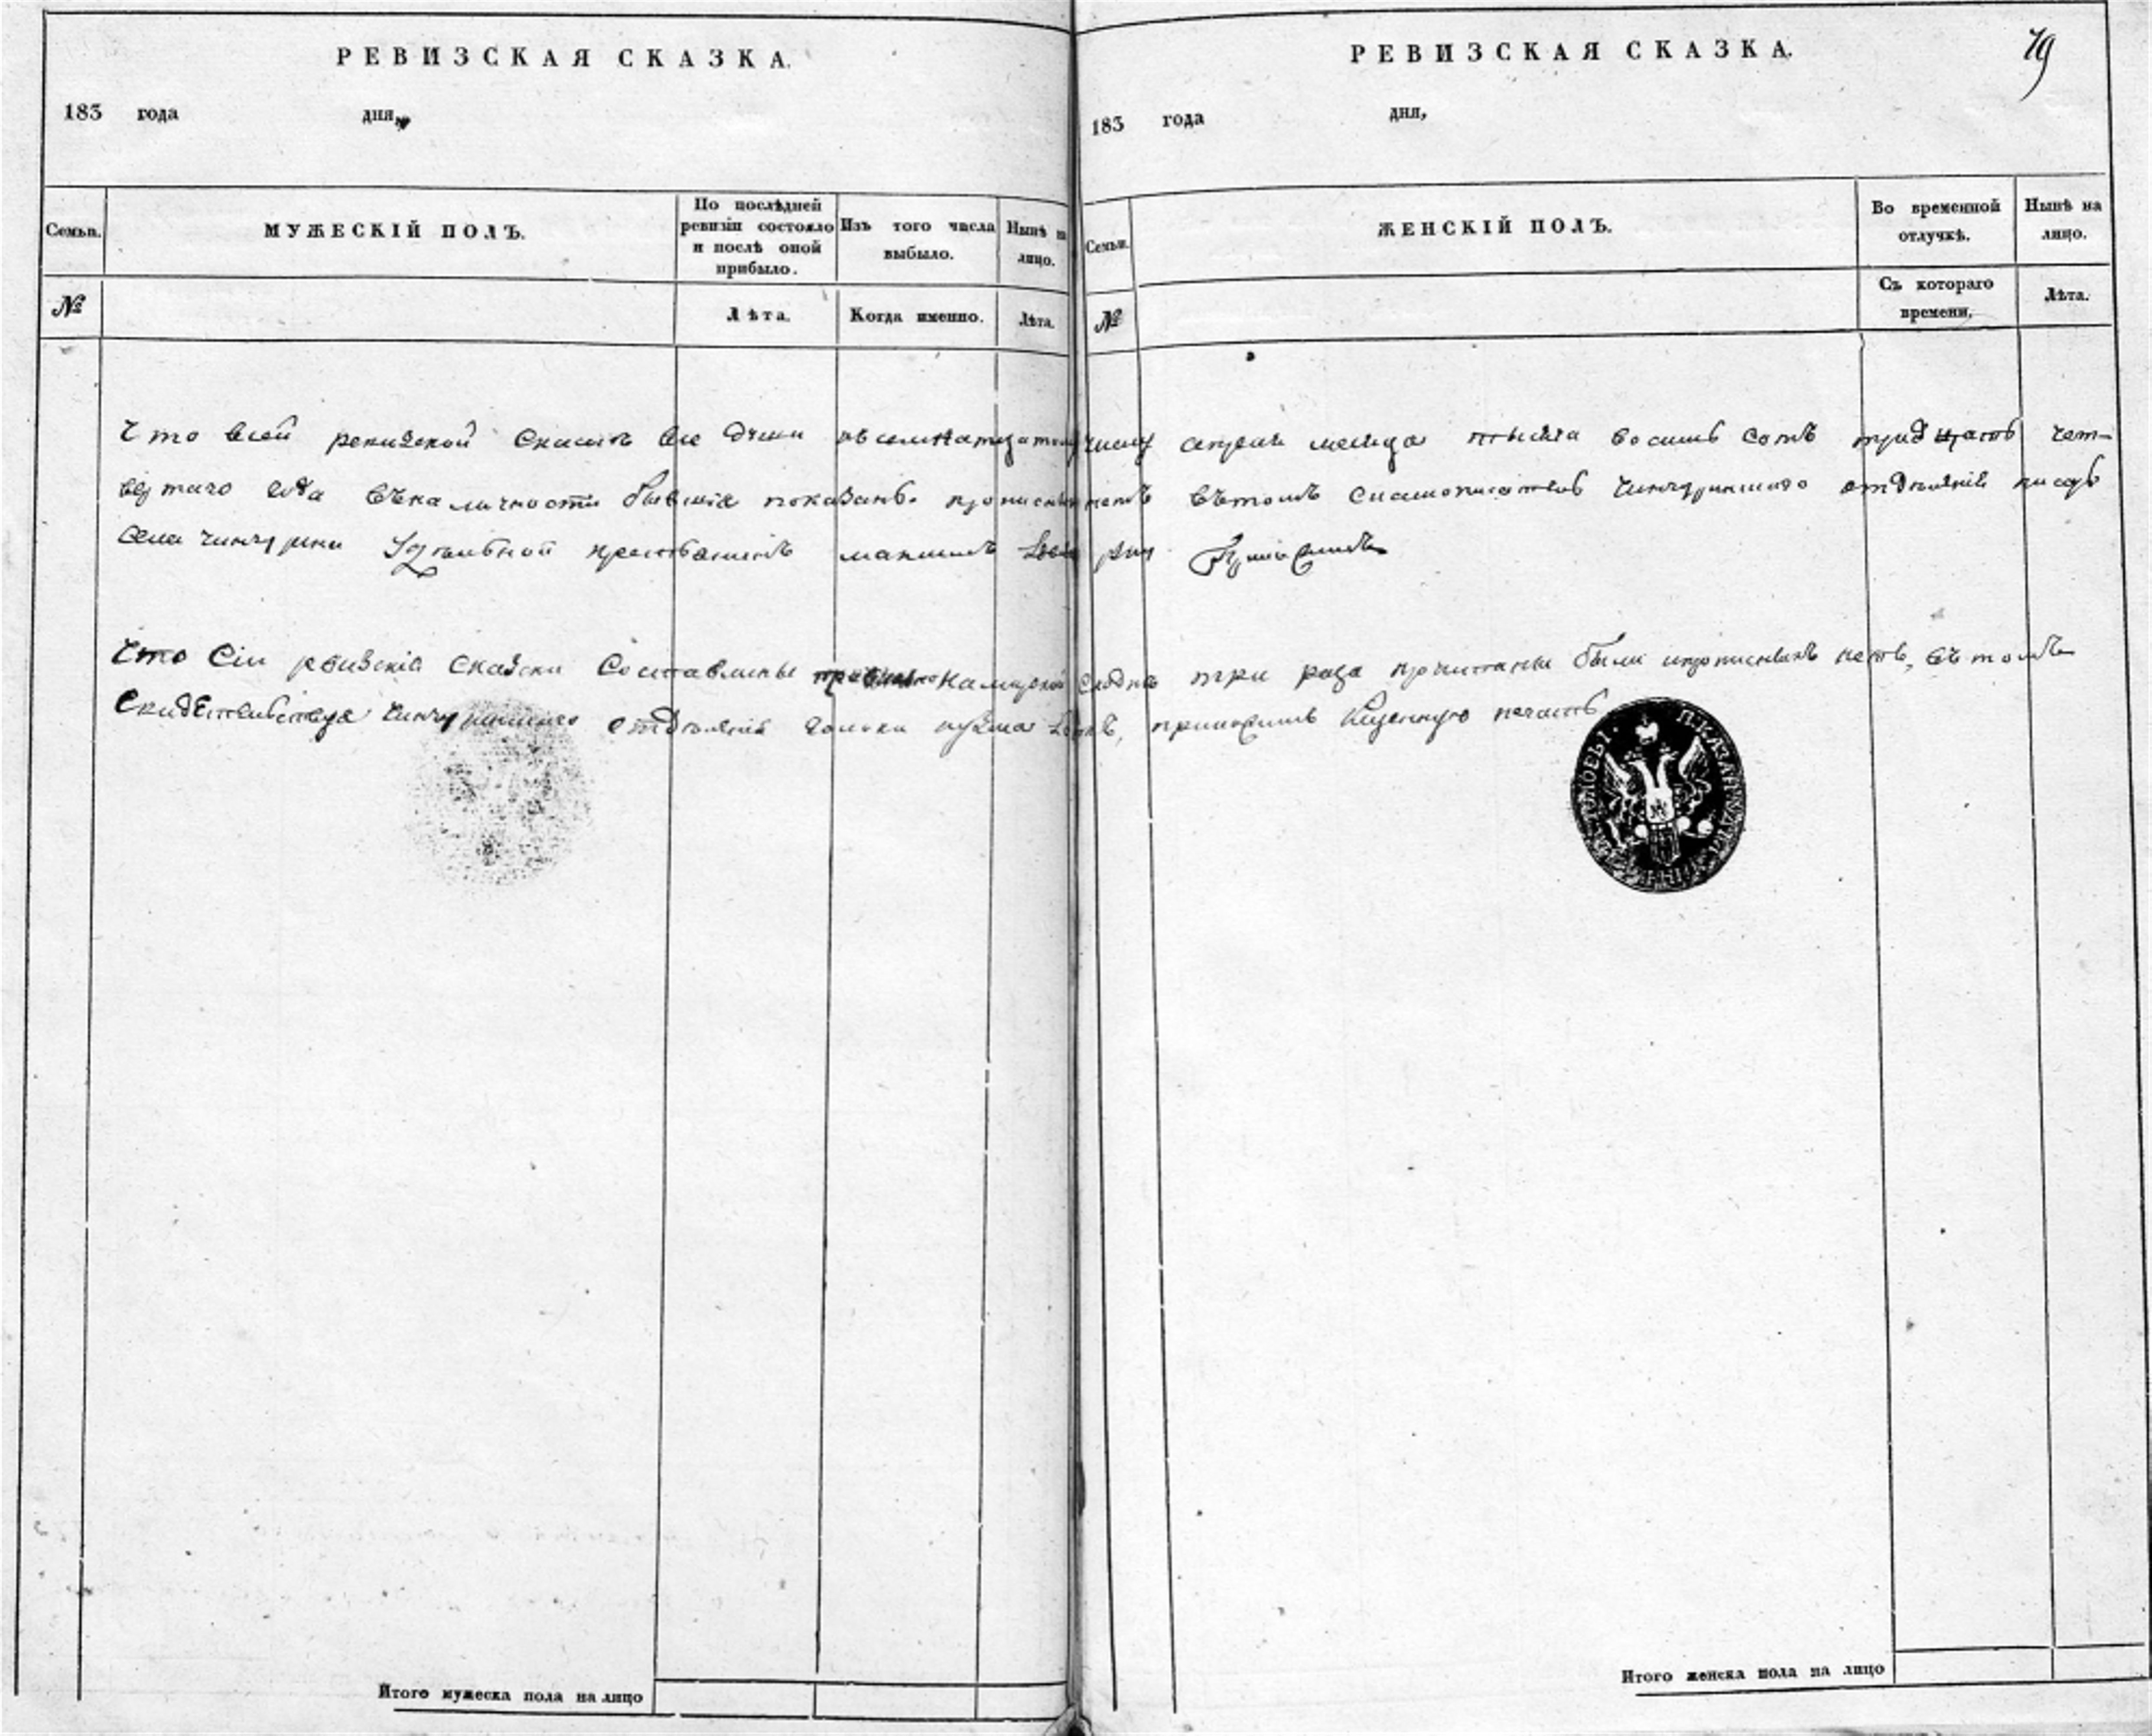 РЕВИЗСКАЯ СКАЗКА.
183 года дня,
Семьи.
МУЖЕСКІЙ ПОЛЪ.
По послѣдней ревизіи состояло и послѣ оной прибыло.
Изъ того числа выбыло.
Нынѣ на лицо.
№
Лѣта.
Когда именно.
Лѣта.
РЕВИЗСКАЯ СКАЗКА.
79
183 года дня,
Семьи.
ЖЕНСКІЙ ПОЛЪ.
Во временной отлучкѣ.
Нынѣ на лицо.
№
Съ котораго времени.
Лѣта.
Что всей ревизской скаске все души числу апреля месяца тысяча восимь сотъ тридцать чет-
вертаго года въналичности бывшие показаны прописныхъ нетъ вътомъ отделения писарь
села Удельной максимъ
Что Сии ревизские Скаски Составлены правильно намирской сходке три раза прочитаны были ипрописныхъ нетъ, вътомъ
Свидетельствуя отделения голова кузма приложилъ Казенную печать
Итого мужеска пола на лицо
Итого женска пола на лицо